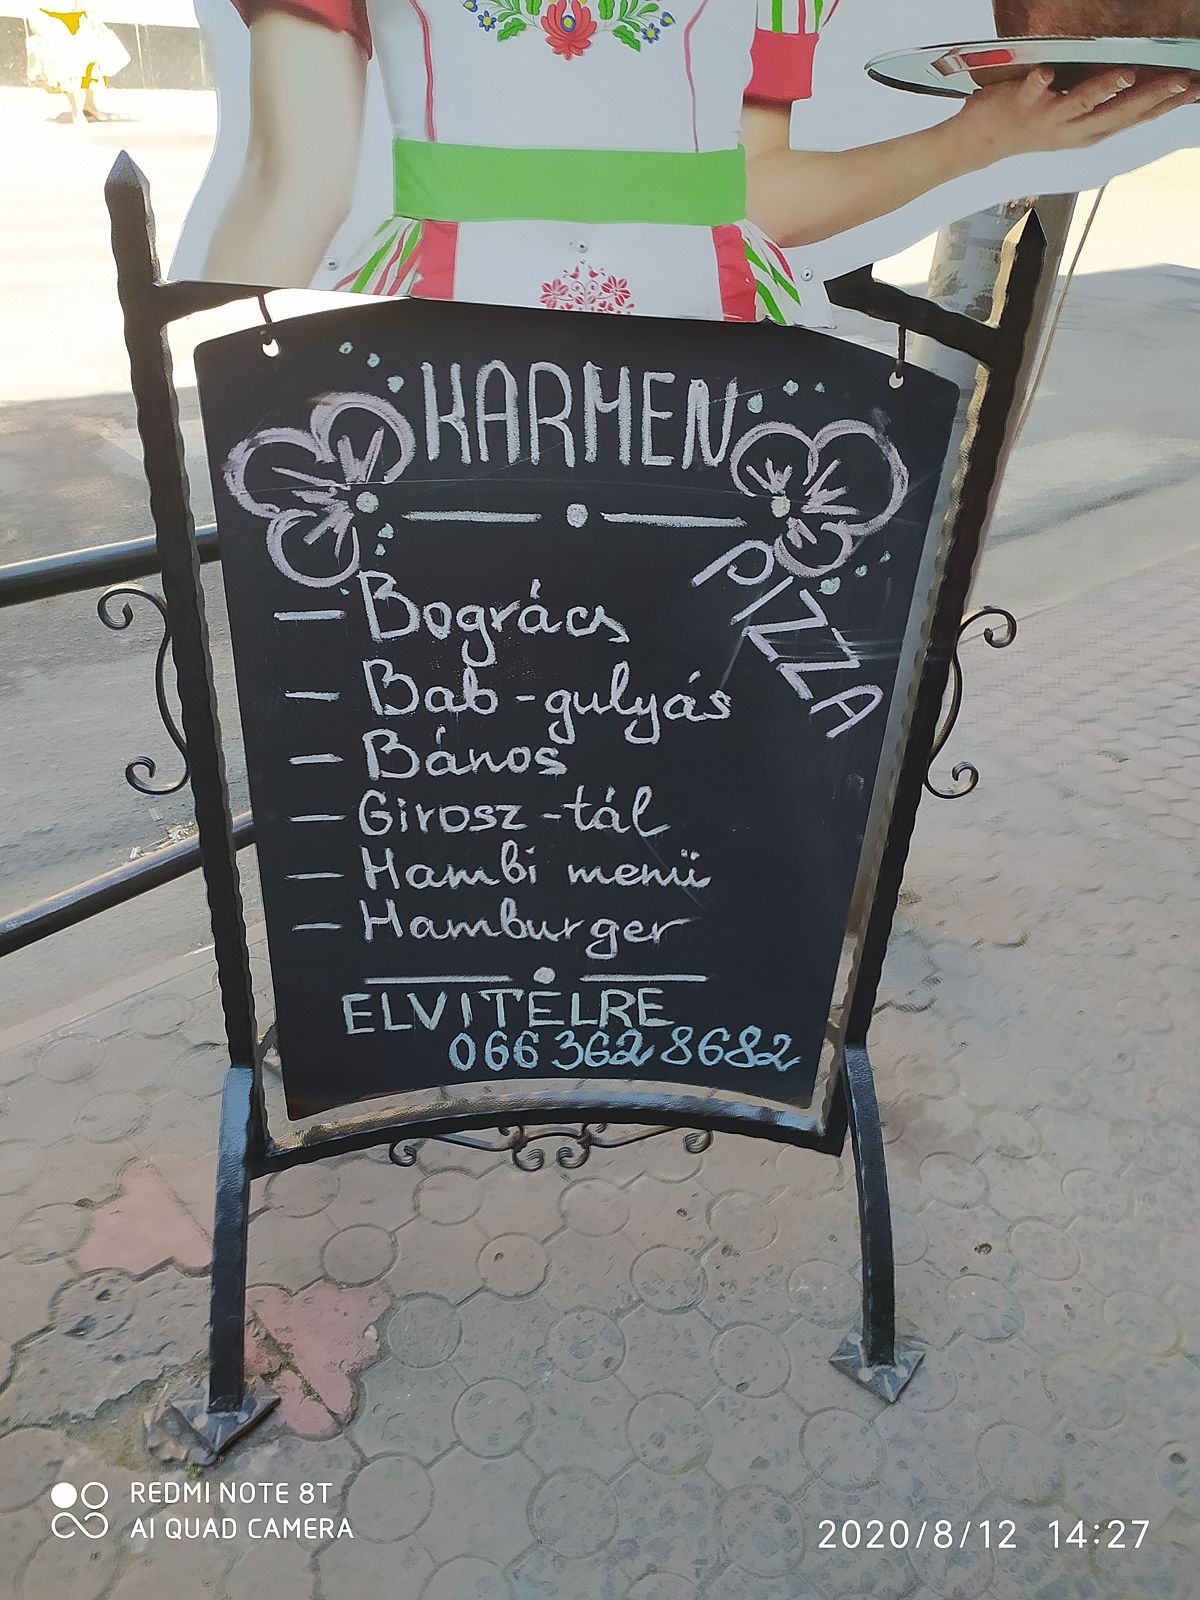 KARMEN
PIZZA
— Bogrács
— Bab-gulyás
— Bános
— Girosz-tál
— Hambi menü
— Hamburger
ELVITELRE
066 362 8682
REDMI NOTE 8T
AI QUAD CAMERA
2020/8/12 14:27